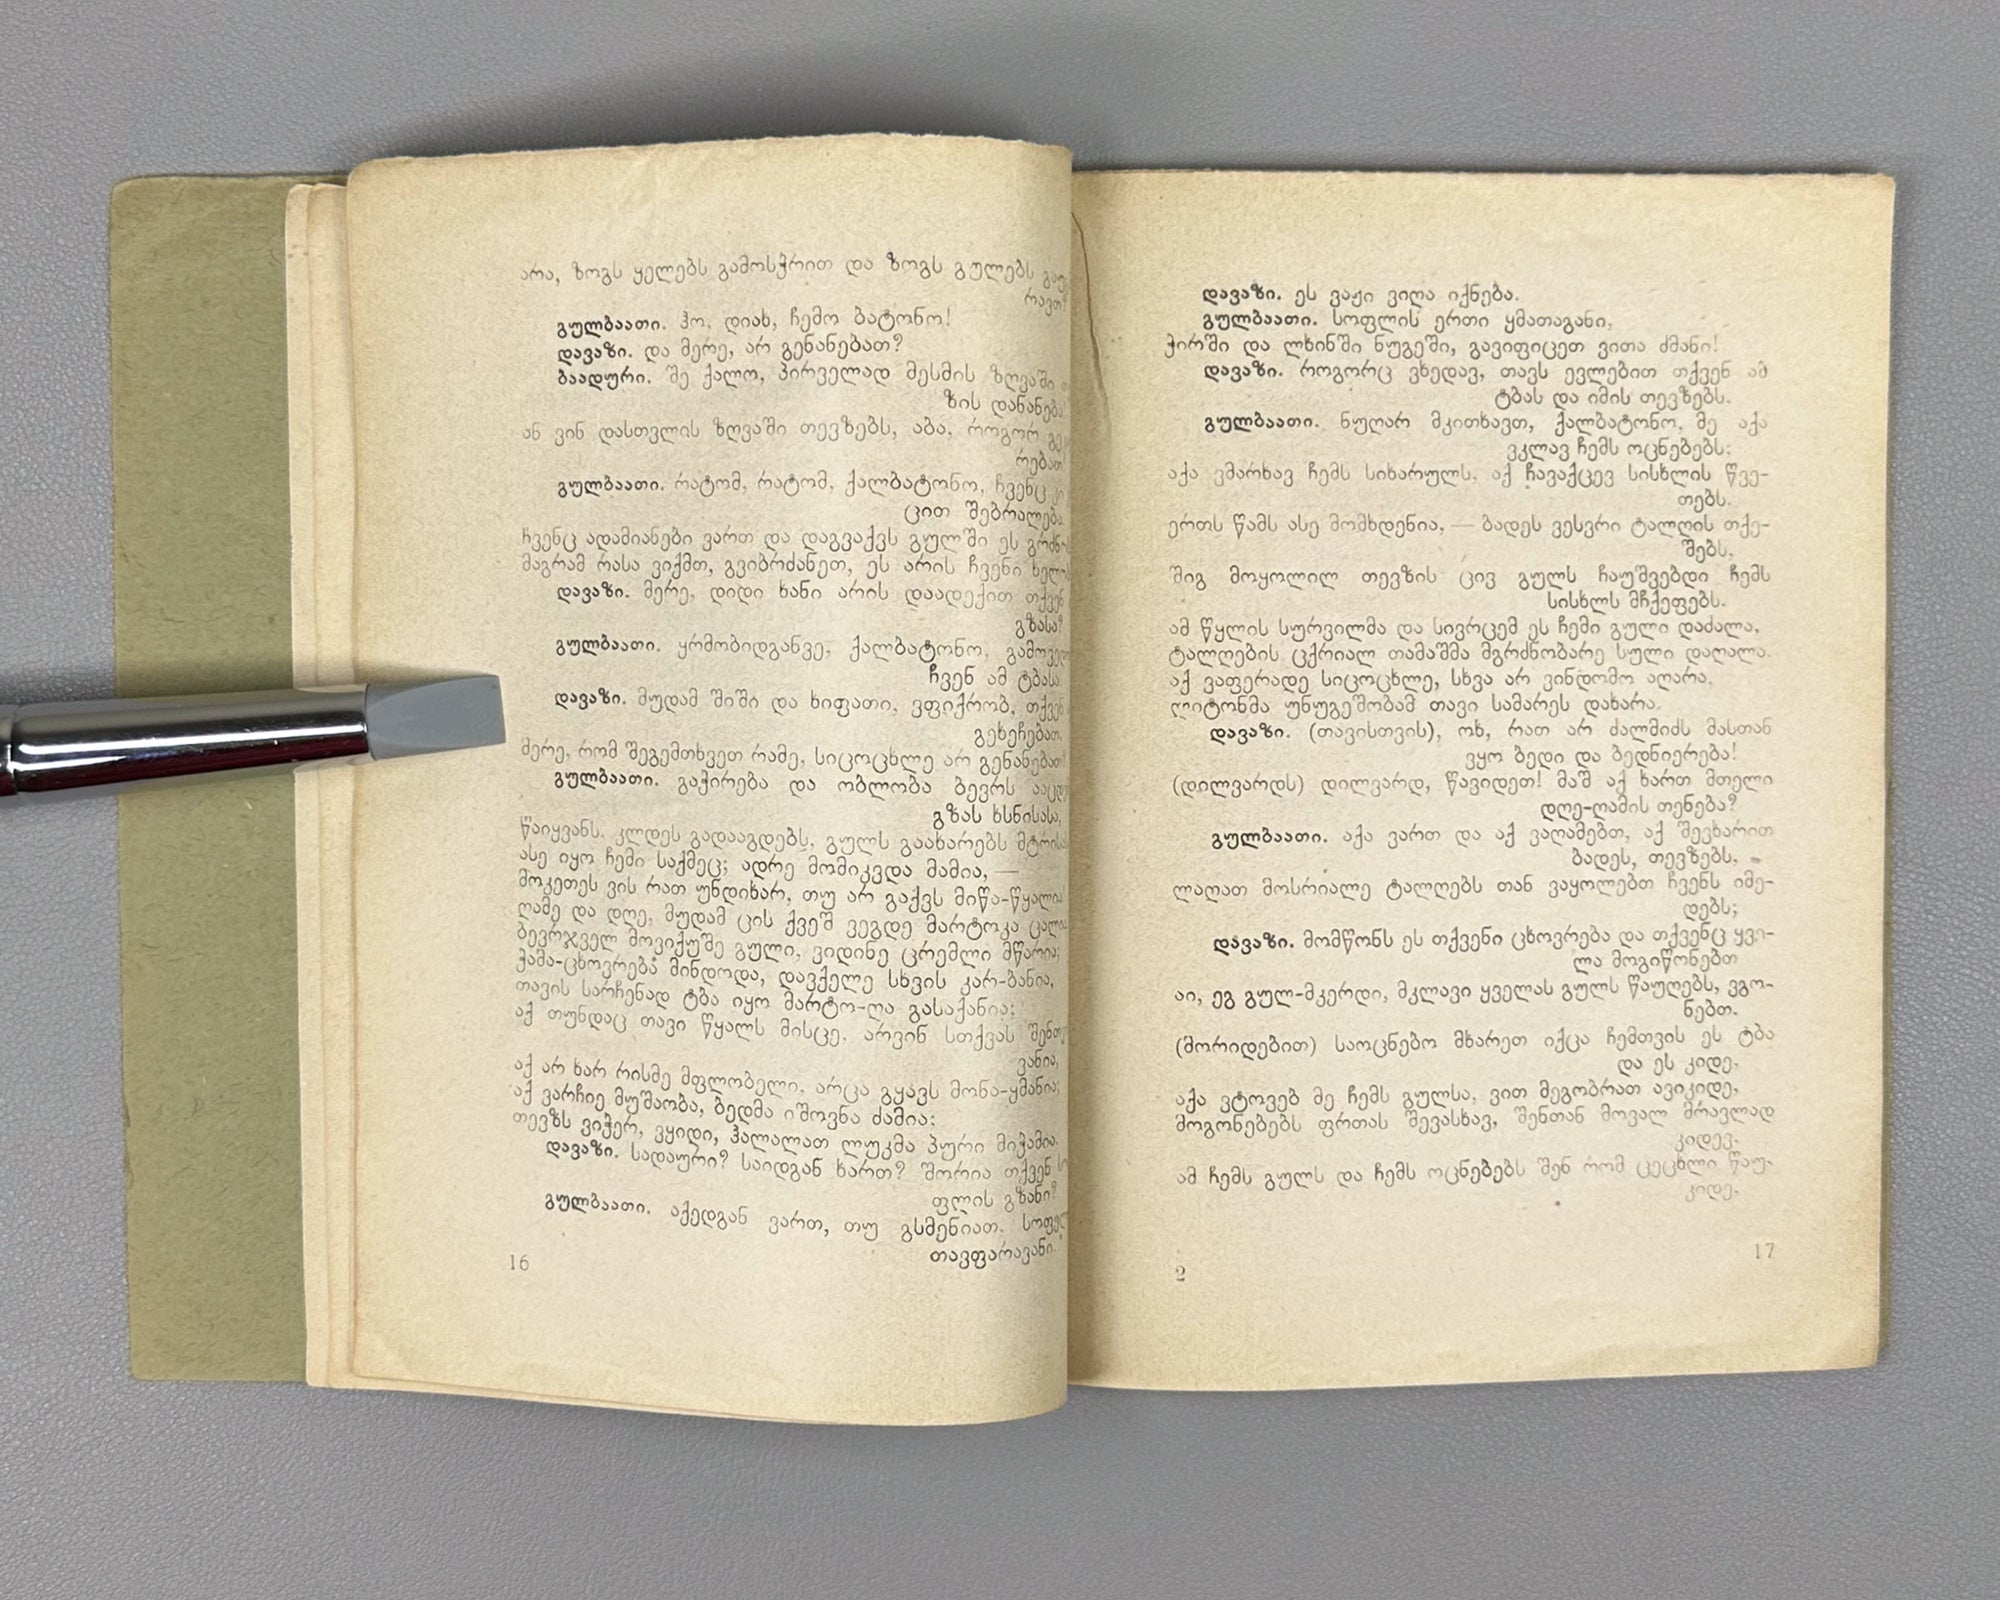 არა, ზოგს ყელებს გამოსჭრით და ზოგს გულებს
რავთ?
გულბაათი. ჰო, დიახ, ჩემო ბატონო!
დავაზი. და მერე, არ გენანებათ?
ბაადური. შე ქალო, პირველად მესმის ზღვაში
ზის დანანება
ან ვინ დასთვლის ზღვაში თევზებს, აბა, როგორ
რებათ
გულბაათი. რატომ, რატომ, ქალბატონო, ჩვენც
ცით შებრალება.
ჩვენც ადამიანები ვართ და დაგვაქვს გულში ეს
მაგრამ რასა ვიქმთ, გვიბრძანეთ, ეს არის ჩვენი
დავაზი. მერე, დიდი ხანი არის დაადექით თქვენ
გზასა?
გულბაათი. ყრმობიდგანვე, ქალბატონო,
ჩვენ ამ ტბასა.
დავაზი. მუდამ შიში და ხიფათი, ვფიქრობ, თქვენ
გეხეჩებათ.
მერე, რომ შეგემთხვეთ რამე, სიცოცხლე არ გენანებათ?
გულბაათი. გაჭირება და ობლობა ბევრს
გზას ხსნისასა,
წაიყვანს, კლდეს გადააგდებს, გულს გაახარებს
ასე იყო ჩემი საქმეც; ადრე მომიკვდა მამია, —
მოკეთეს ვის რათ უნდიხარ, თუ არ გაქვს მიწა-წყალია
ღამე და დღე, მუდამ ცის ქვეშ ვეგდე მარტოკა
ბევრჯველ მოვიქუშე გული, ვიდინე ცრემლი მწარია;
ჭამა-ცხოვრება მინდოდა, დავქელე სხვის კარ-ბანია,
თავის სარჩენად ტბა იყო მარტო-ღა გასაქანია;
აქ თუნდაც თავი წყალს მისცე, არვინ სთქვას
ვანია,
აქ არ ხარ რისმე მფლობელი, არცა გყავს მონა-ყმანია;
აქ ვარჩიე მუშაობა, ბედმა იშოვნა ძამია:
თევზს ვიჭერ, ვყიდი, ჰალალათ ლუკმა პური მიჭამია.
დავაზი. სადაური? საიდგან ხართ? შორია თქვენ
ფლის გზანი?
გულბაათი. აქედგან ვართ, თუ გსმენიათ,
თავფარავანი
16
დავაზი. ეს ვაჟი ვიღა იქნება.
გულბაათი. სოფლის ერთი ყმათაგანი,
ჭირში და ლხინში ნუგეში, გავიფიცეთ ვითა ძმანი!
დავაზი. როგორც ვხედავ, თავს ევლებით თქვენ ამ
ტბას და იმის თევზებს.
გულბაათი. ნუღარ მკითხავთ, ქალბატონო, მე აქა
ვკლავ ჩემს ოცნებებს;
აქა ვმარხავ ჩემს სიხარულს, აქ ჩავაქცევ სისხლის წვე-
თებს.
ერთს წამს ასე მომხდენია, — ბადეს ვესვრი ტალღის თქე-
შებს,
შიგ მოყოლილ თევზის ცივ გულს ჩაუშვებდი ჩემს
სისხლს მჩქეფებს.
ამ წყლის სურვილმა და სივრცემ ეს ჩემი გული დაძალა,
ტალღების ცქრიალ თამაშმა მგრძნობარე სული დაღალა.
აქ ვაფერადე სიცოცხლე, სხვა არ ვინდომო აღარა,
ლიტონმა უნუგეშობამ თავი სამარეს დახარა.
დავაზი. (თავისთვის), ოხ, რათ არ ძალმიძს მასთან
ვყო ბედი და ბედნიერება!
(დილვარდს) დილვარდ, წავიდეთ! მაშ აქ ხართ მთელი
დღე-ღამის თენება?
გულბაათი. აქა ვართ და აქ ვაღამებთ, აქ შევხარით
ბადეს, თევზებს,
ლაღათ მოსრიალე ტალღებს თან ვაყოლებთ ჩვენს იმე-
დებს;
დავაზი. მომწონს ეს თქვენი ცხოვრება და თქვენც ყვე-
ლა მოგიწონებთ
აი, ეგ გულ-მკერდი, მკლავი ყველას გულს წაუღებს, ვგო-
ნებთ.
(მორიდებით) საოცნებო მხარეთ იქცა ჩემთვის ეს ტბა
და ეს კიდე,
აქა ვტოვებ მე ჩემს გულსა, ვით მეგობრათ ავიკიდე,
მოგონებებს ფრთას შევასხავ, შენთან მოვალ მრავლად
კიდევ,
ამ ჩემს გულს და ჩემს ოცნებებს შენ რომ ცეცხლი წაუ-
კიდე,
17
2